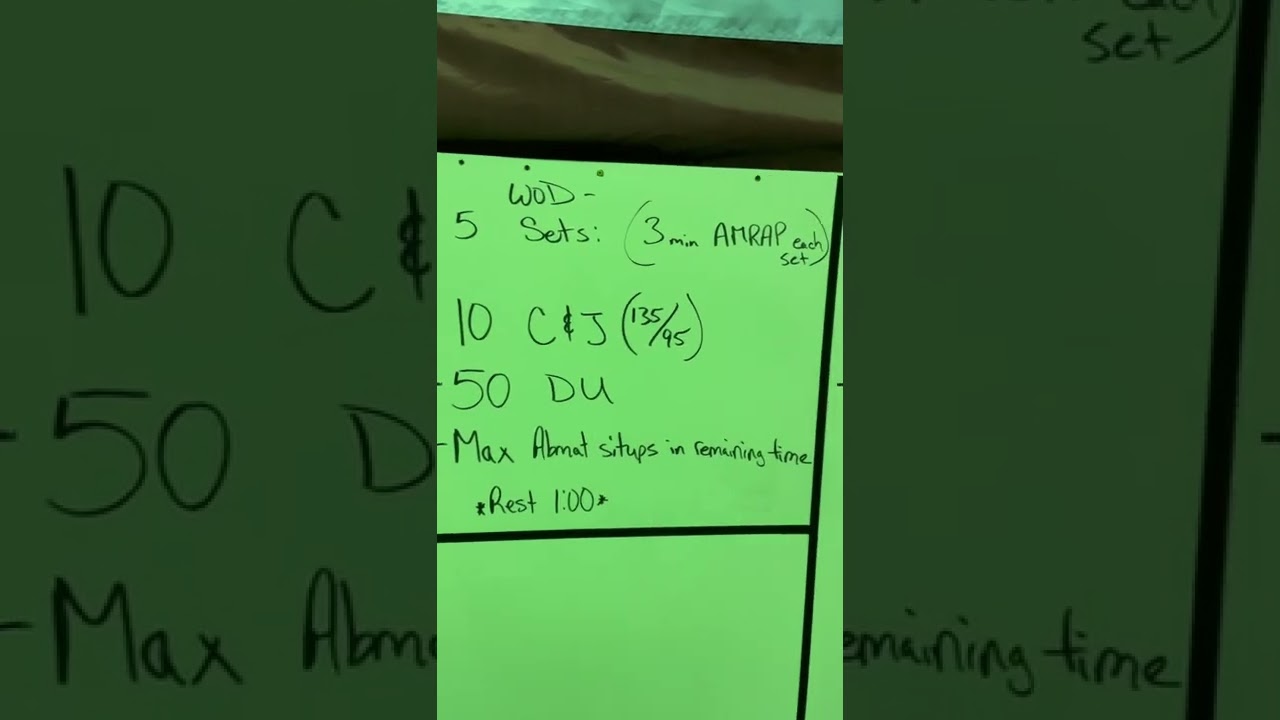 WOD -
5 Sets: (3 min AMRAP each set)
10 C&J (135/95)
-50 DU
-Max Abmat situps in remaining time
*Rest 1:00*